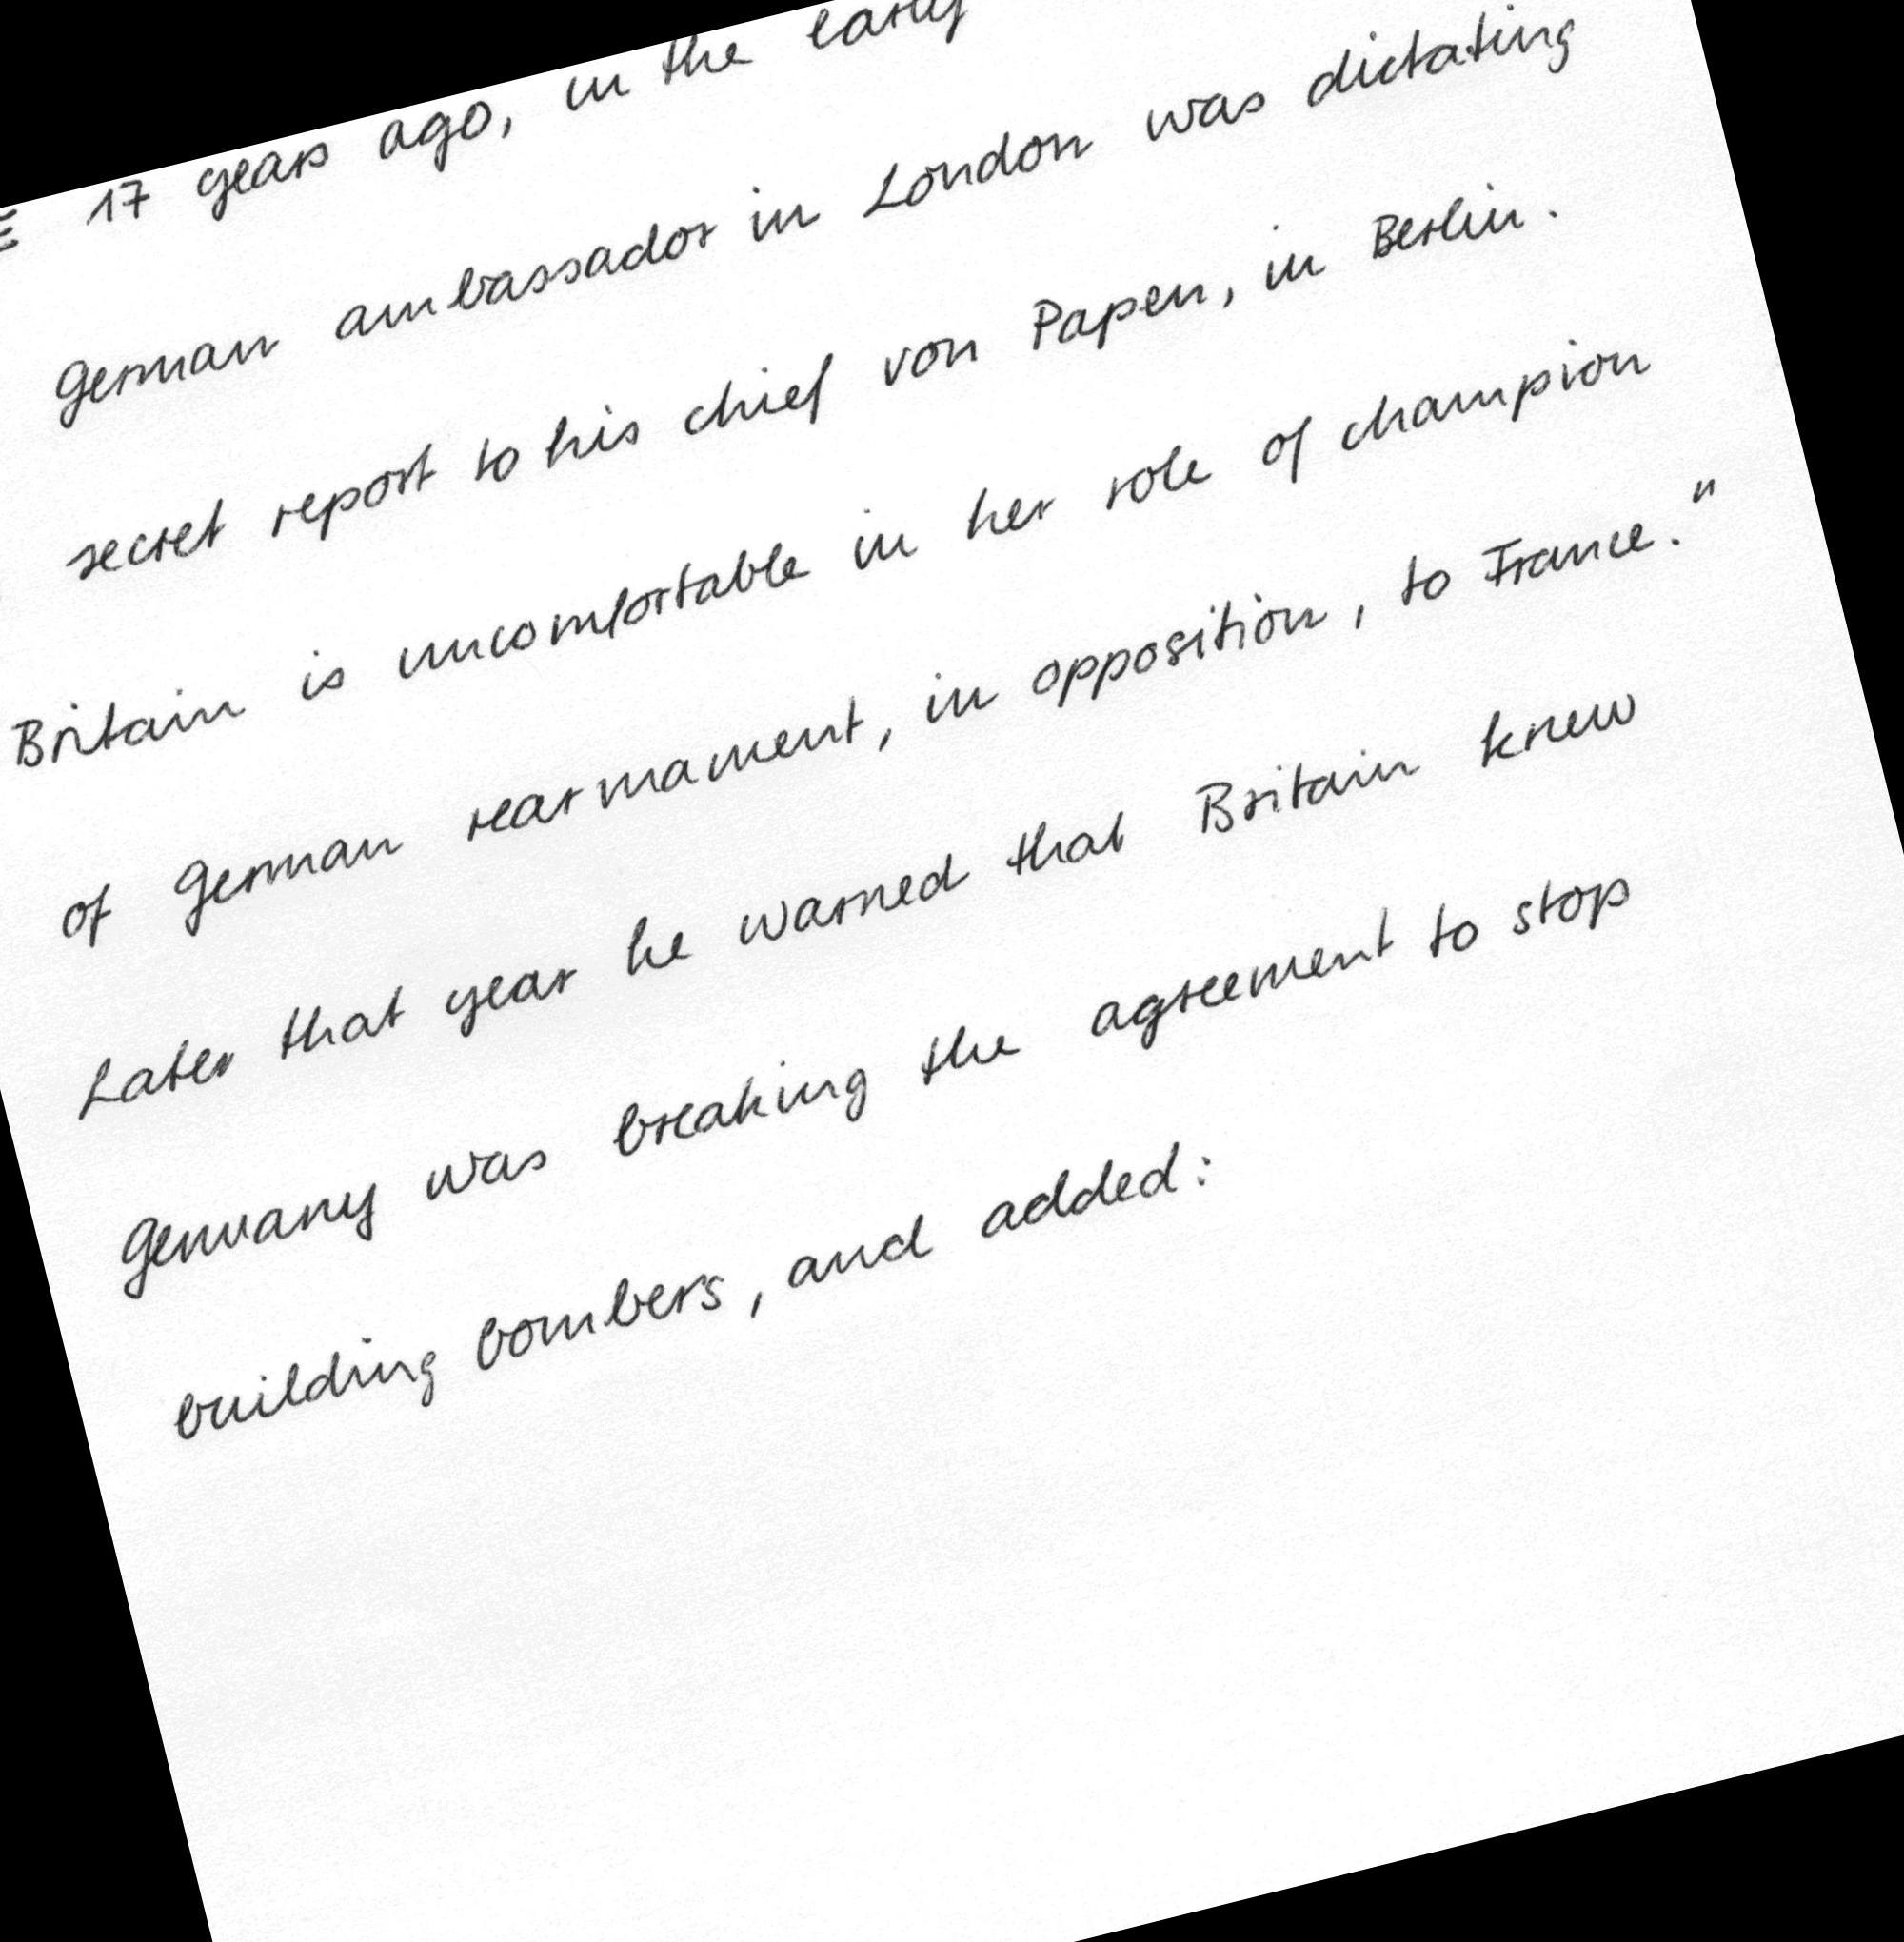 17 years ago, in the early
German ambassador in London was dictating
secret report to his chief von Papen, in Berlin.
Britain is uncomfortable in her role of champion
of German rearmament, in opposition, to France."
Later that year he warned that Britain knew
Germany was breaking the agreement to stop
building bombers, and added: